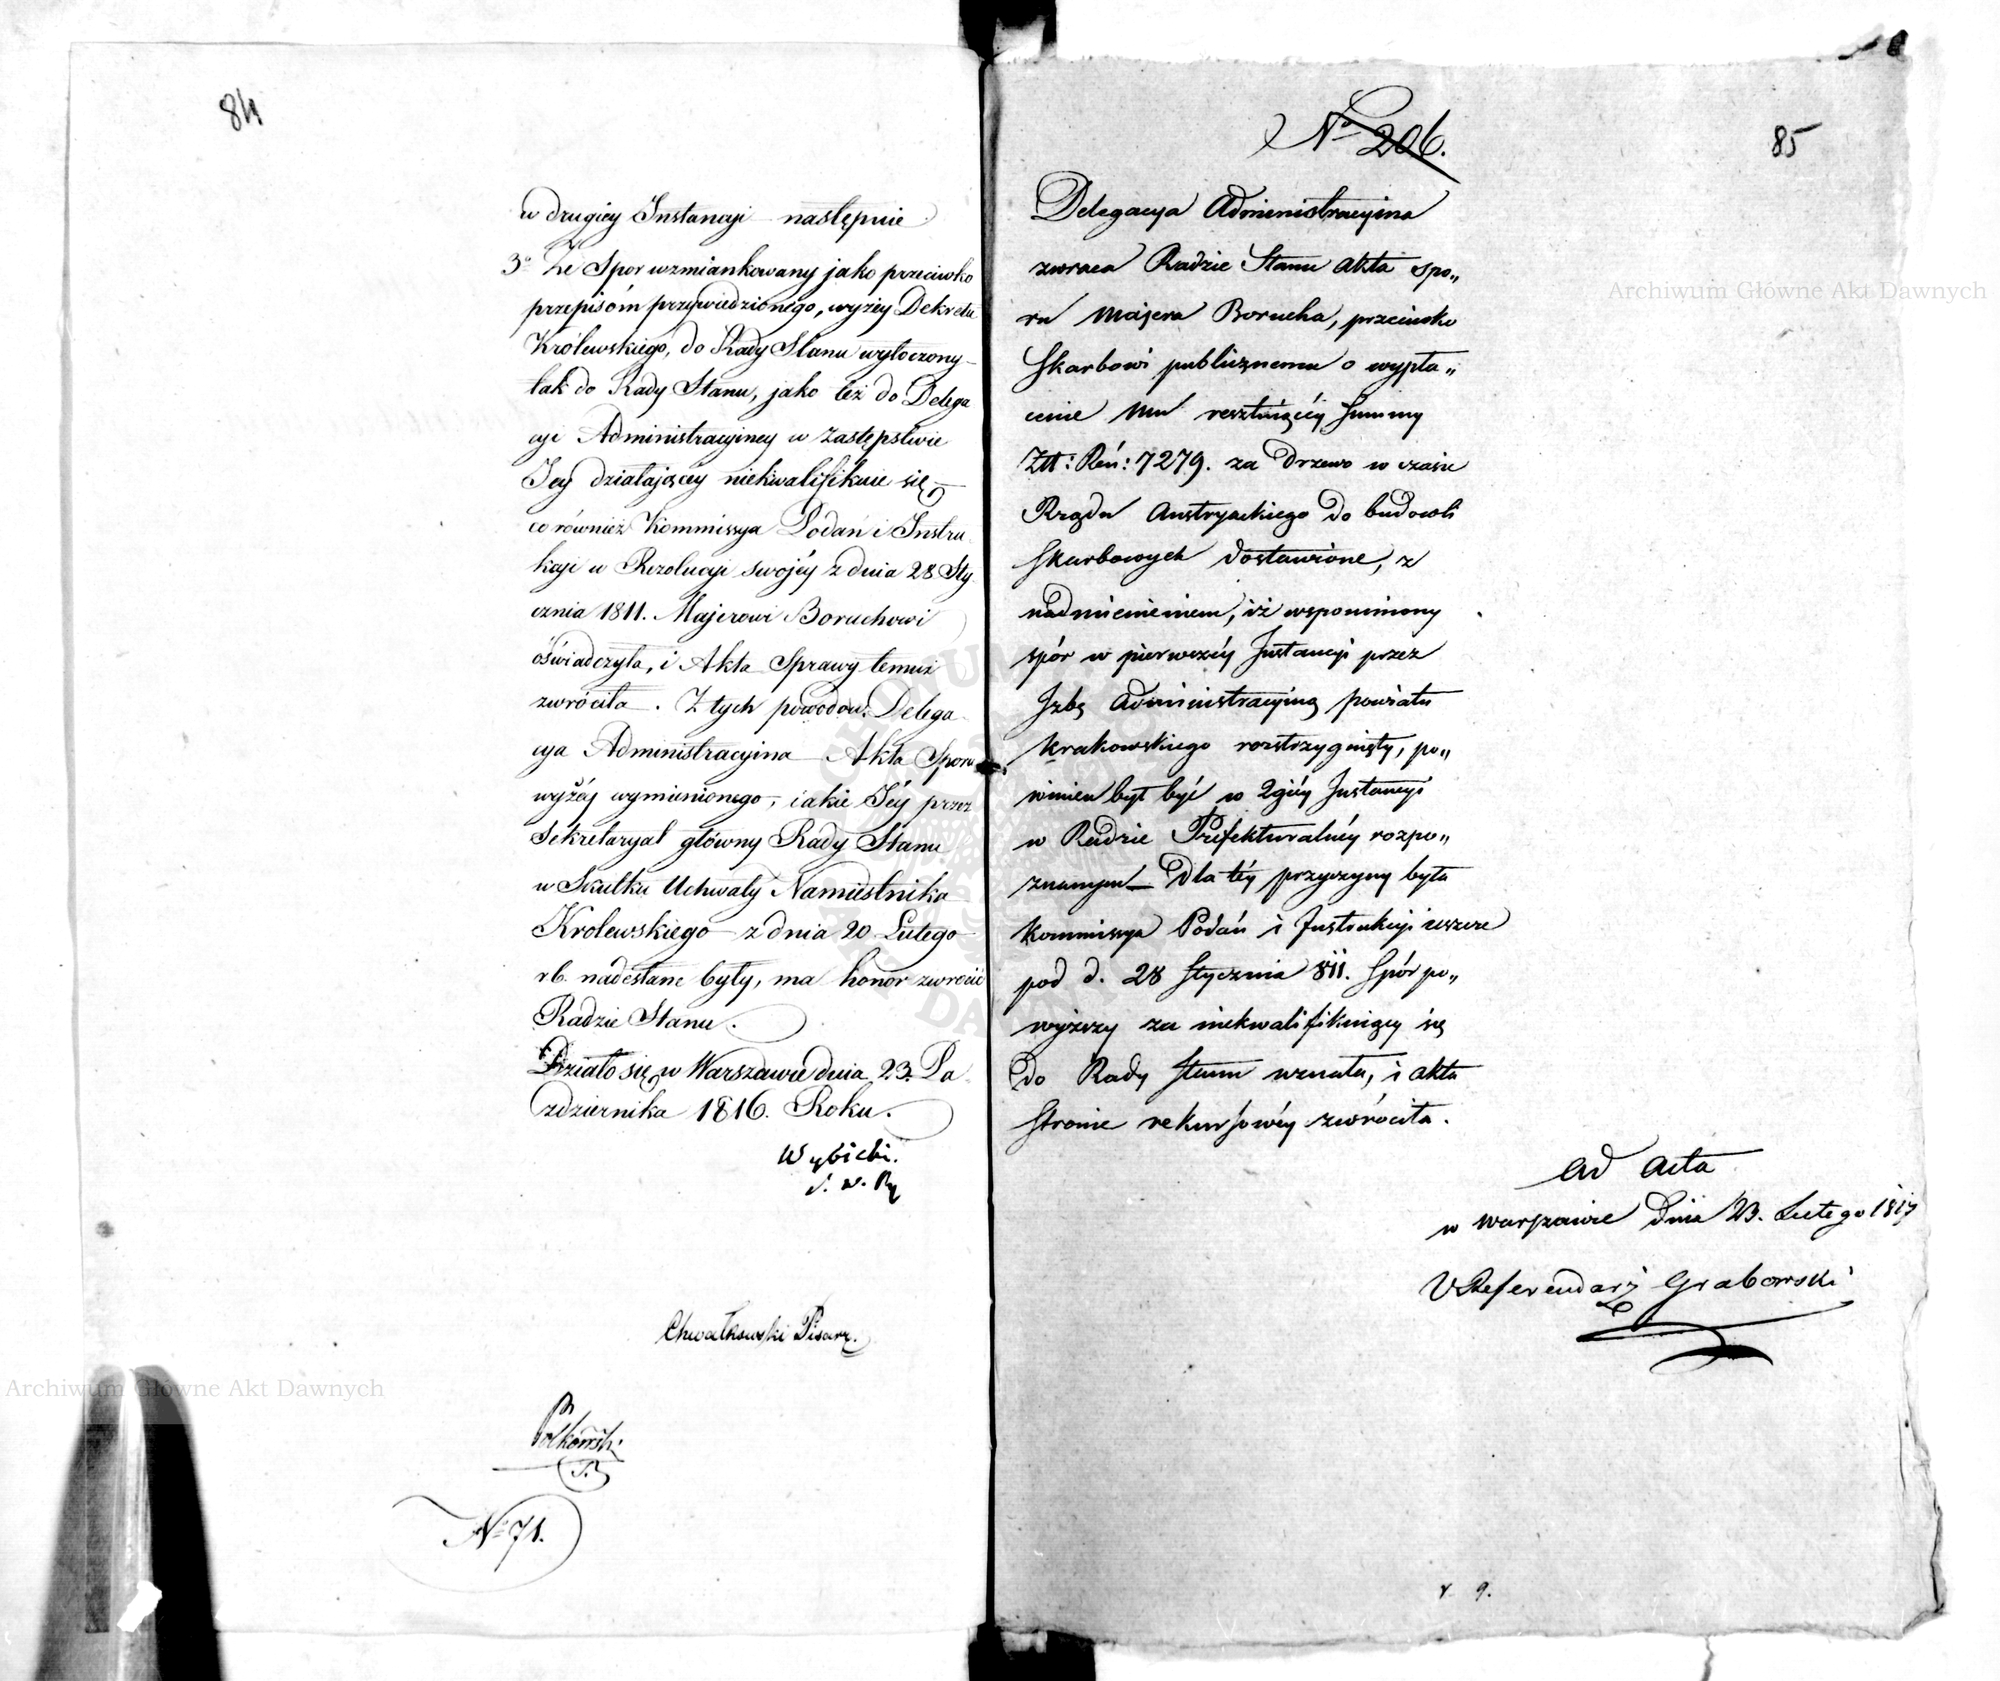 84
w drugiey Instancyi następnie
3º Że Spor wzmiankowany jako przeciwko
przepisóm przywiedzionego, wyżey Dekretu
Królewskiego, do Rady Stanu wytoczony
tak do Rady Stanu, jako też do Delega
cyi Administracyiney w zastępstwie
Jey działającéy niekwalifikuie się,
co również Kommissya Podań i Instru
kcji w Rezolucyi swojéy z dnia 28 Sty
cznia 1811. Majerowi Boruchowi
oświadczyła, i Akta Sprawy temuż
zwróciła. Z tych powodów Delega
cya Administracyina Akta Sporu
wyżéy wymienionego, iakie Jéy przez
Sekretaryat główny Rady Stanu
w Skutku Uchwały Namiestnika
Krolewskiego z dnia 20 Lutego
rb. nadesłane były, ma honor zwrócić
Radzie Stanu.
Działo się w Warszawie dnia 23. Pa
zdziernika 1816. Roku.
Wybicki.
Chwałkowski Pisarz.
Nº 71.
Nº 206.
85
Delegacya Administracyina
zwraca Radzie Stanu Akta spo„
ru Majera Borucha, przeciwko
Skarbowi publicznemu o wypła„
cenie Mu resztuiącéy Summy
Złt: Reń: 7279. za Drzewo w czasie
Rządu Austryackiego do budowli
Skarbowych dostawione, z
nadmienieniem, iż wspomniony
spór w pierwszéy Instancyi przez
Izbę Administracyiną powiatu
Krakowskiego rozstrzygnięty, po„
winien był być w 2giéy Instancyi
w Radzie Prefekturalnéy rozpo„
znanym – Dla téy przyczyny była
Kommissya Podań i Instrukcyi ieszcze
pod d. 28 Stycznia 811. Spór po„
wyższy za niekwalifikuiący się
do Rady Stanu uznała, i akta
Stronie rekursowéy zwróciła.
Ad Acta
w Warszawie Dnia 23. Lutego 1817
V Referendarz Grabowski
9.
Archiwum Główne Akt Dawnych
Archiwum Główne Akt Dawnych